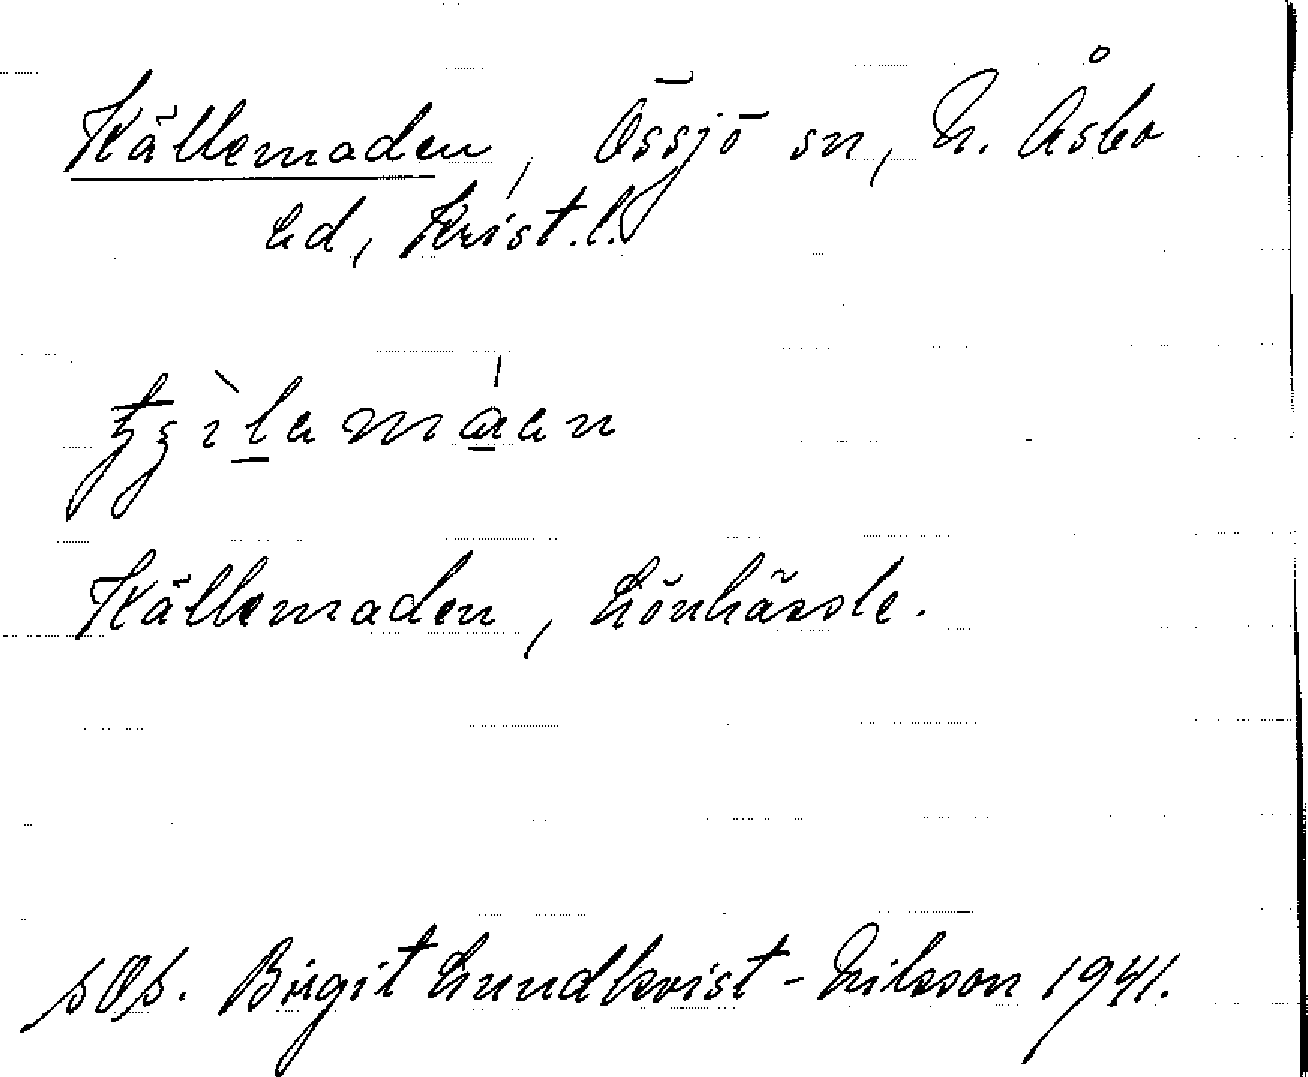 Källemaden, Össjö sn, N. Åsbo
hd, Krist.l.
Källemaden, Lönhässle.
Birgit Lundkvist-Nilsson 1941.